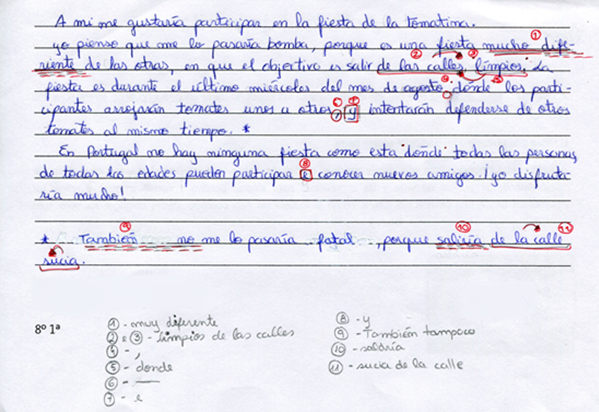 A mi me gustaría participar en la fiesta de la tomatina.
yo pienso que me lo pasaría bomba, porque es una fiesta mucho dife-
riente de las otras, en que el objectivo es salir de las calles limpios. La
fiesta es durante el ultimo miércoles del mes de agosto, donde los parti-
cipantes arrojarán tomates unos a otros, y intentarán defenderse de otros
tomates al mismo tiempo. *
En Portugal no hay ninguna fiesta como esta donde todas las personas,
de todas las edades pueden participar e conocer nuevos amigos. ¡yo disfruta-
ría mucho!
* También no me lo pasaría fatal, porque saliría de la calle
sucia.
8º 1ª
① - muy diferente
② e ③ - limpios de las calles
④ - ,
⑤ - donde
⑥ - —
⑦ - e
⑧ - y
⑨ - También tampoco
⑩ - saldría
⑪ - sucia de la calle